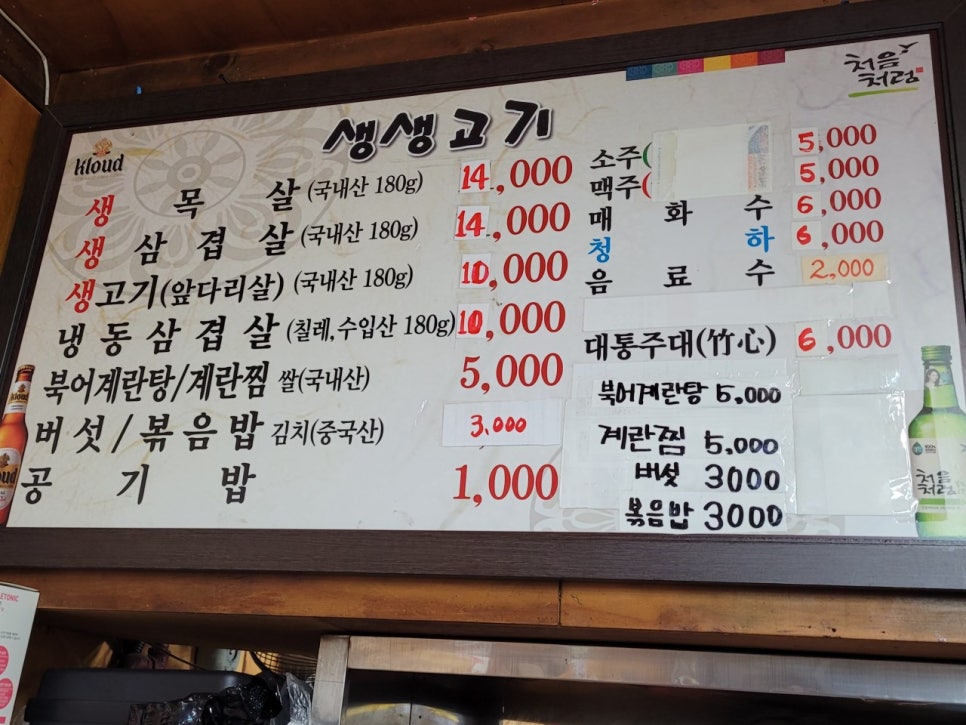 생생고기
처음
처럼
kloud
생목살 (국내산 180g) 14,000
생삼겹살 (국내산 180g) 14,000
생고기(앞다리살) (국내산 180g) 10,000
냉동삼겹살 (칠레,수입산 180g) 10,000
북어계란탕/계란찜 쌀(국내산) 5,000
버섯/볶음밥 김치(중국산) 3.000
공기밥 1,000
소주( 5,000
맥주( 5,000
매화수 6,000
청하 6,000
음료수 2,000
대통주대(竹心) 6,000
북어계란탕 5,000
계란찜 5,000
버섯 3000
볶음밥 3000
처음
처럼